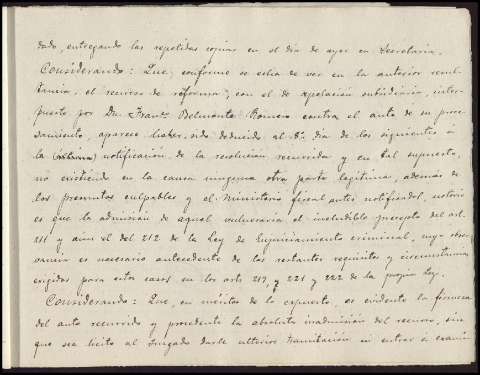 dado, entregando las repetidas copias en el día de ayer en Secretaría.
Considerando: Que, conforme se echa de ver en la anterior resul-
tancia, el recurso de reforma, con el de apelación subsidiaria, inter-
puesto por Dn. Franco. Belmonte Romero contra el auto de su proce-
samiento, aparece haber sido deducido al día de los siguientes á
la (última) notificación de la resolución recurrida y en tal supuesto,
no existiendo en la causa ninguna otra parte legítima, además de
los presuntos culpables y el Ministerio fiscal antes notificados, notorio
es que la admisión de aquel vulneraría el ineludible precepto del art.
211 y aun el del 212 de la Ley de Enjuiciamiento criminal, cuya obser-
vancia es necesario antecedente de los restantes requisitos y circunstancias
exigidas para estos casos en los arts 219, y 221 y 222 de la propia Ley.
Considerando: Que, en méritos de lo expuesto, es evidente la firmeza
del auto recurrido y procedente la absoluta inadmisión del recurso, sin
que sea lícito al Juzgado darle ulterior tramitación ni entrar á exami-